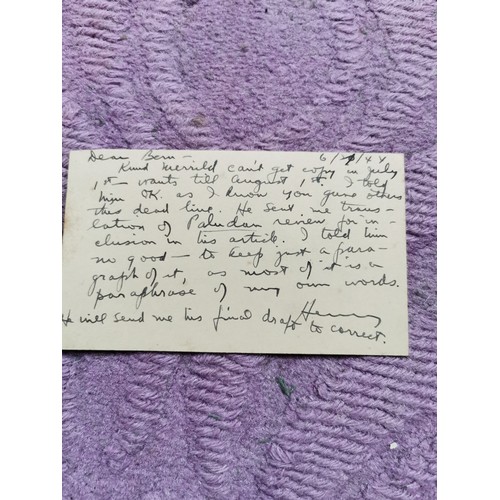 Dear Bern — 6/21/44
Knud Merrild can't get copy in July
1st — wants till August 1st. I told
him OK. as I know you gave others
this dead line. He sent me trans-
lation of Paludan review for in-
clusion in his article. I told him
no good — to keep just a para-
graph of it, as most of it is a
paraphrase of my own words.
Henry
He will send me his final draft to correct.